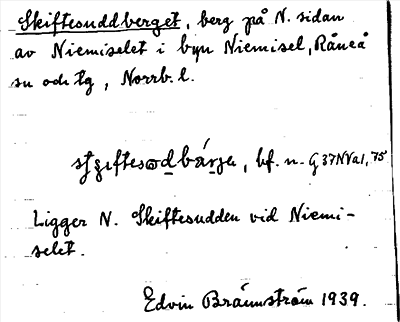 Skiftesuddberget, berg på N. sidan
av Niemiselet i byn Niemisel, Råneå
sn och tg, Norrb. l.
bf. n. G 37 NVa1, 75
Ligger N. Skiftesudden vid Niemi-
selet.
Edvin Brännström 1939.